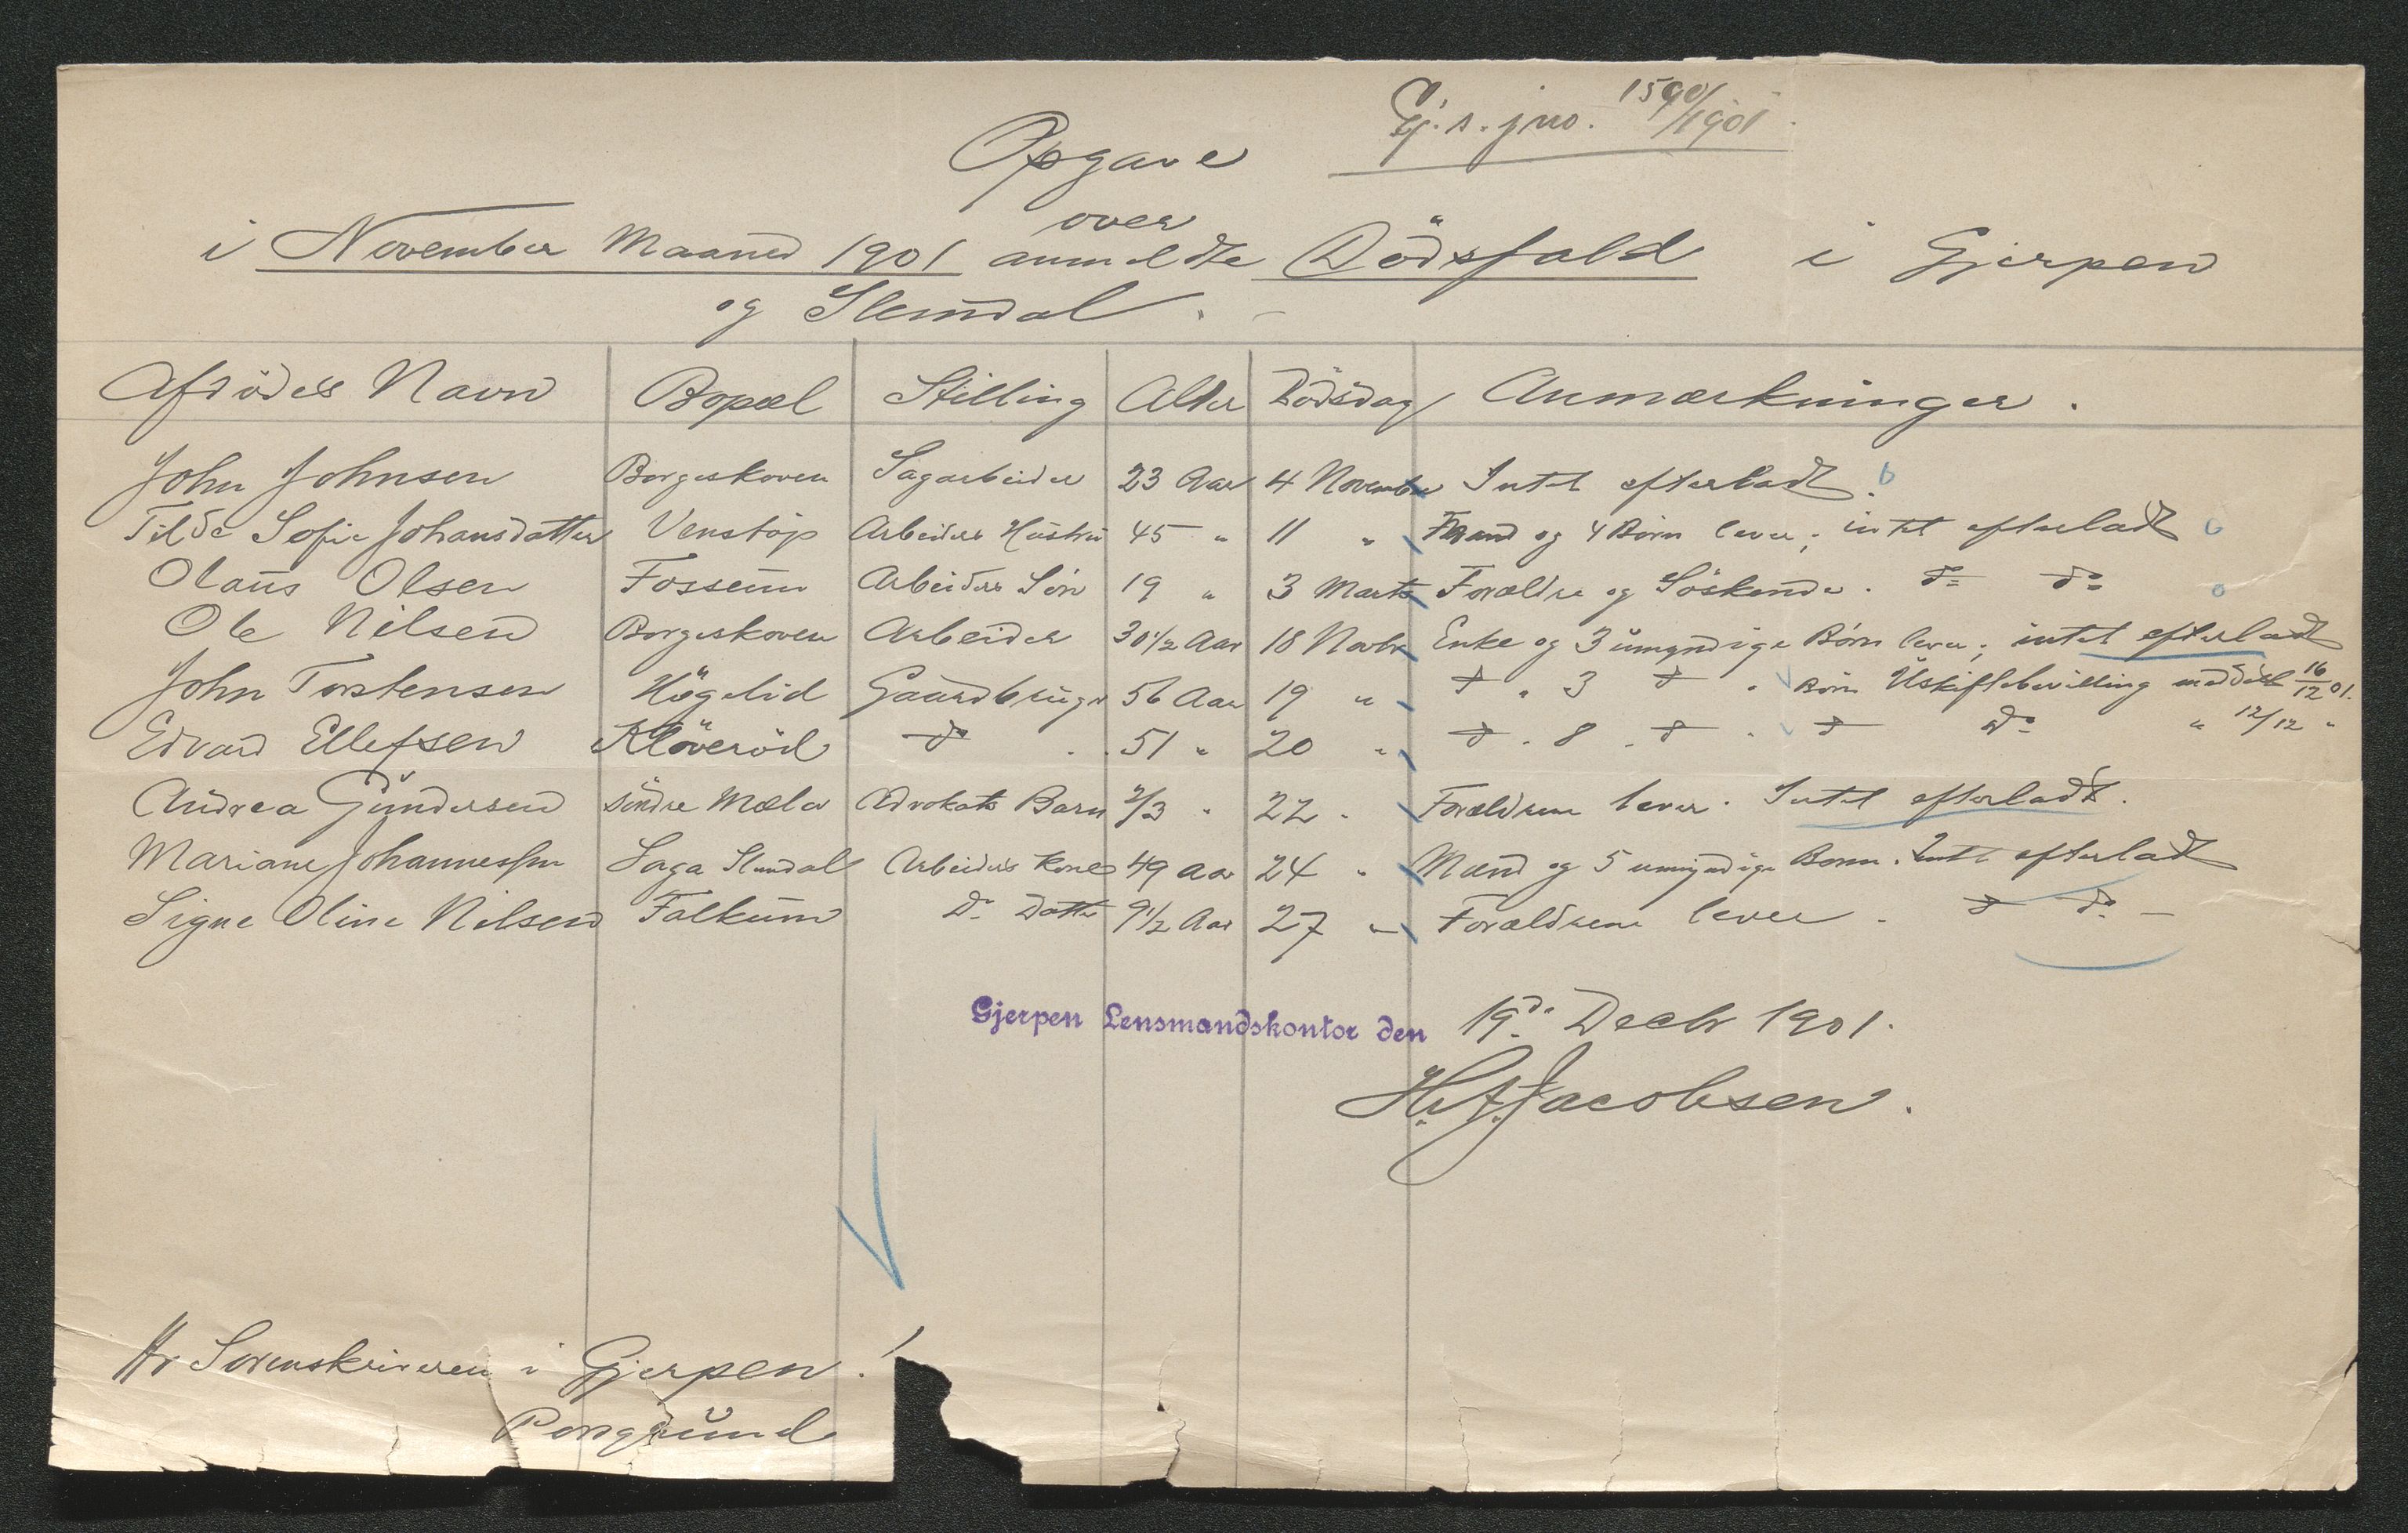 Gj. s. jno. 1590/1901.
Opgave
over
i November Maaned 1901 anmeldte Dödsfald i Gjerpen
og Slemdal.
Afdödes Navn Bopæl Stilling Alder Dödsdag Anmærkninger.
John Johnsen Borgeskoven Sagarbeider 23 Aar 4 November Intet efterladt.
Tilda Sofie Johansdatter Venstöp Arbeiders Hustru 45 " 11 " Mand og 4 Börn lever; intet efterladt
Olaus Olsen Fossum Arbeiders Sön 19 " 3 Marts Forældre og Söskende. do do
Ole Nilsen Borgeskoven Arbeider 30 1/2 Aar 18 Novbr Enke og 3 umyndige Börn lever; intet efterladt
John Torstensen Högelid Gaardbruger 56 Aar 19 " do " 3 do " Börn Uskiftebevilling meddelt 16/12 01.
Edvard Ellefsen Klöveröd do 51 " 20 " do " 8 " do " do do " 12/12 "
Andrea Gundersen söndre Mæla Advokats Barn 2/3 " 22 " Forældrene lever. Intet efterladt.
Mariane Johannessen Saga Slemdal Arbeiders Kone 49 Aar 24 " Mand og 5 umyndige Börn. Intet efterladt
Signe Oline Nilsen Falkum Do Datter 9 1/2 Aar 27 " Forældrene lever. do do
Gjerpen Lensmandskontor den 19de Decbr 1901.
H. A. Jacobsen.
Hr Sorenskriveren i Gjerpen!
Porsgrund